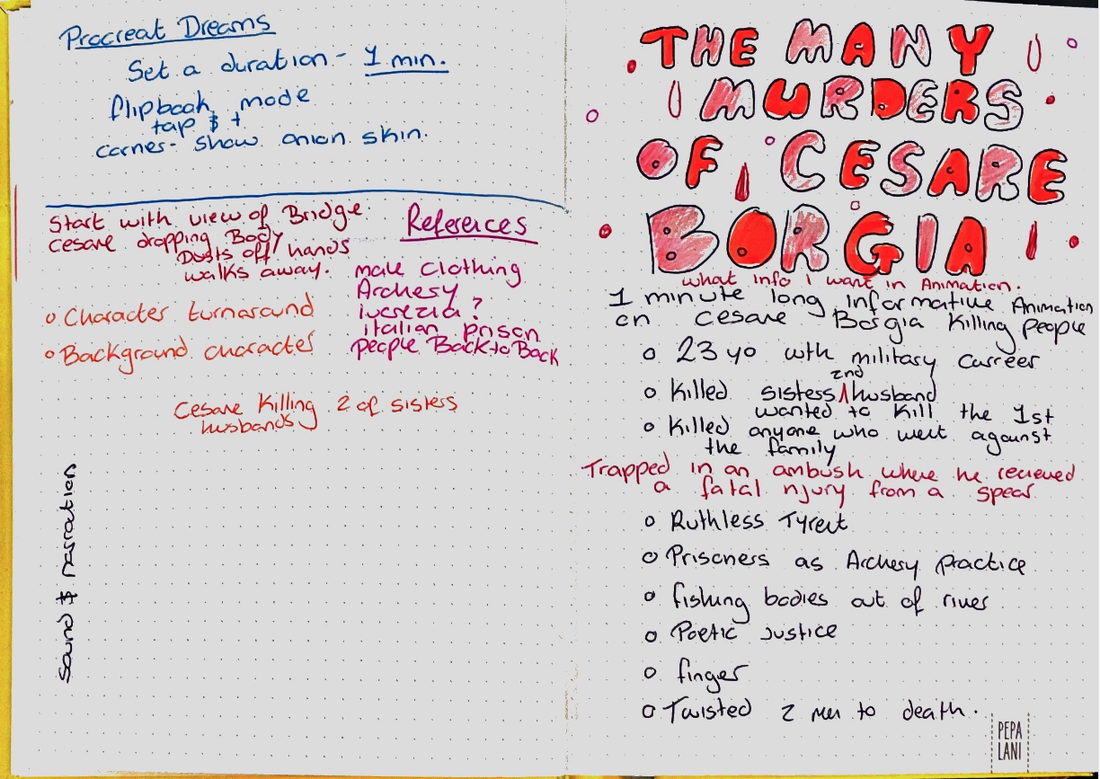 Procreat Dreams
Set a duration - 1 min.
flipbook mode
tap $ +
corner - show onion skin.
Start with view of Bridge
Cesare dropping Body
Dusts off hands
walks away.
Character turnaround
Background character
References
male clothing
Archery
lucrezia?
italian prison
people Back to Back
Cesare Killing 2 of sisters
husbands
Sound $ narration
THE MANY
MURDERS
OF CESARE
BORGIA
what info i want in Animation.
1 minute long informative Animation
on Cesare Borgia Killing people
o 23 yo with military carreer
2nd
o Killed sisters husband
wanted to kill the 1st
o Killed anyone who went against
the family
Trapped in an ambush where he recieved
a fatal njury from a spear
o Ruthless Tyrent
o Prisoners as Archery practice
o fishing bodies out of river
o Poetic Justice
o finger
o Twisted 2 men to death.
PEPA
LANI